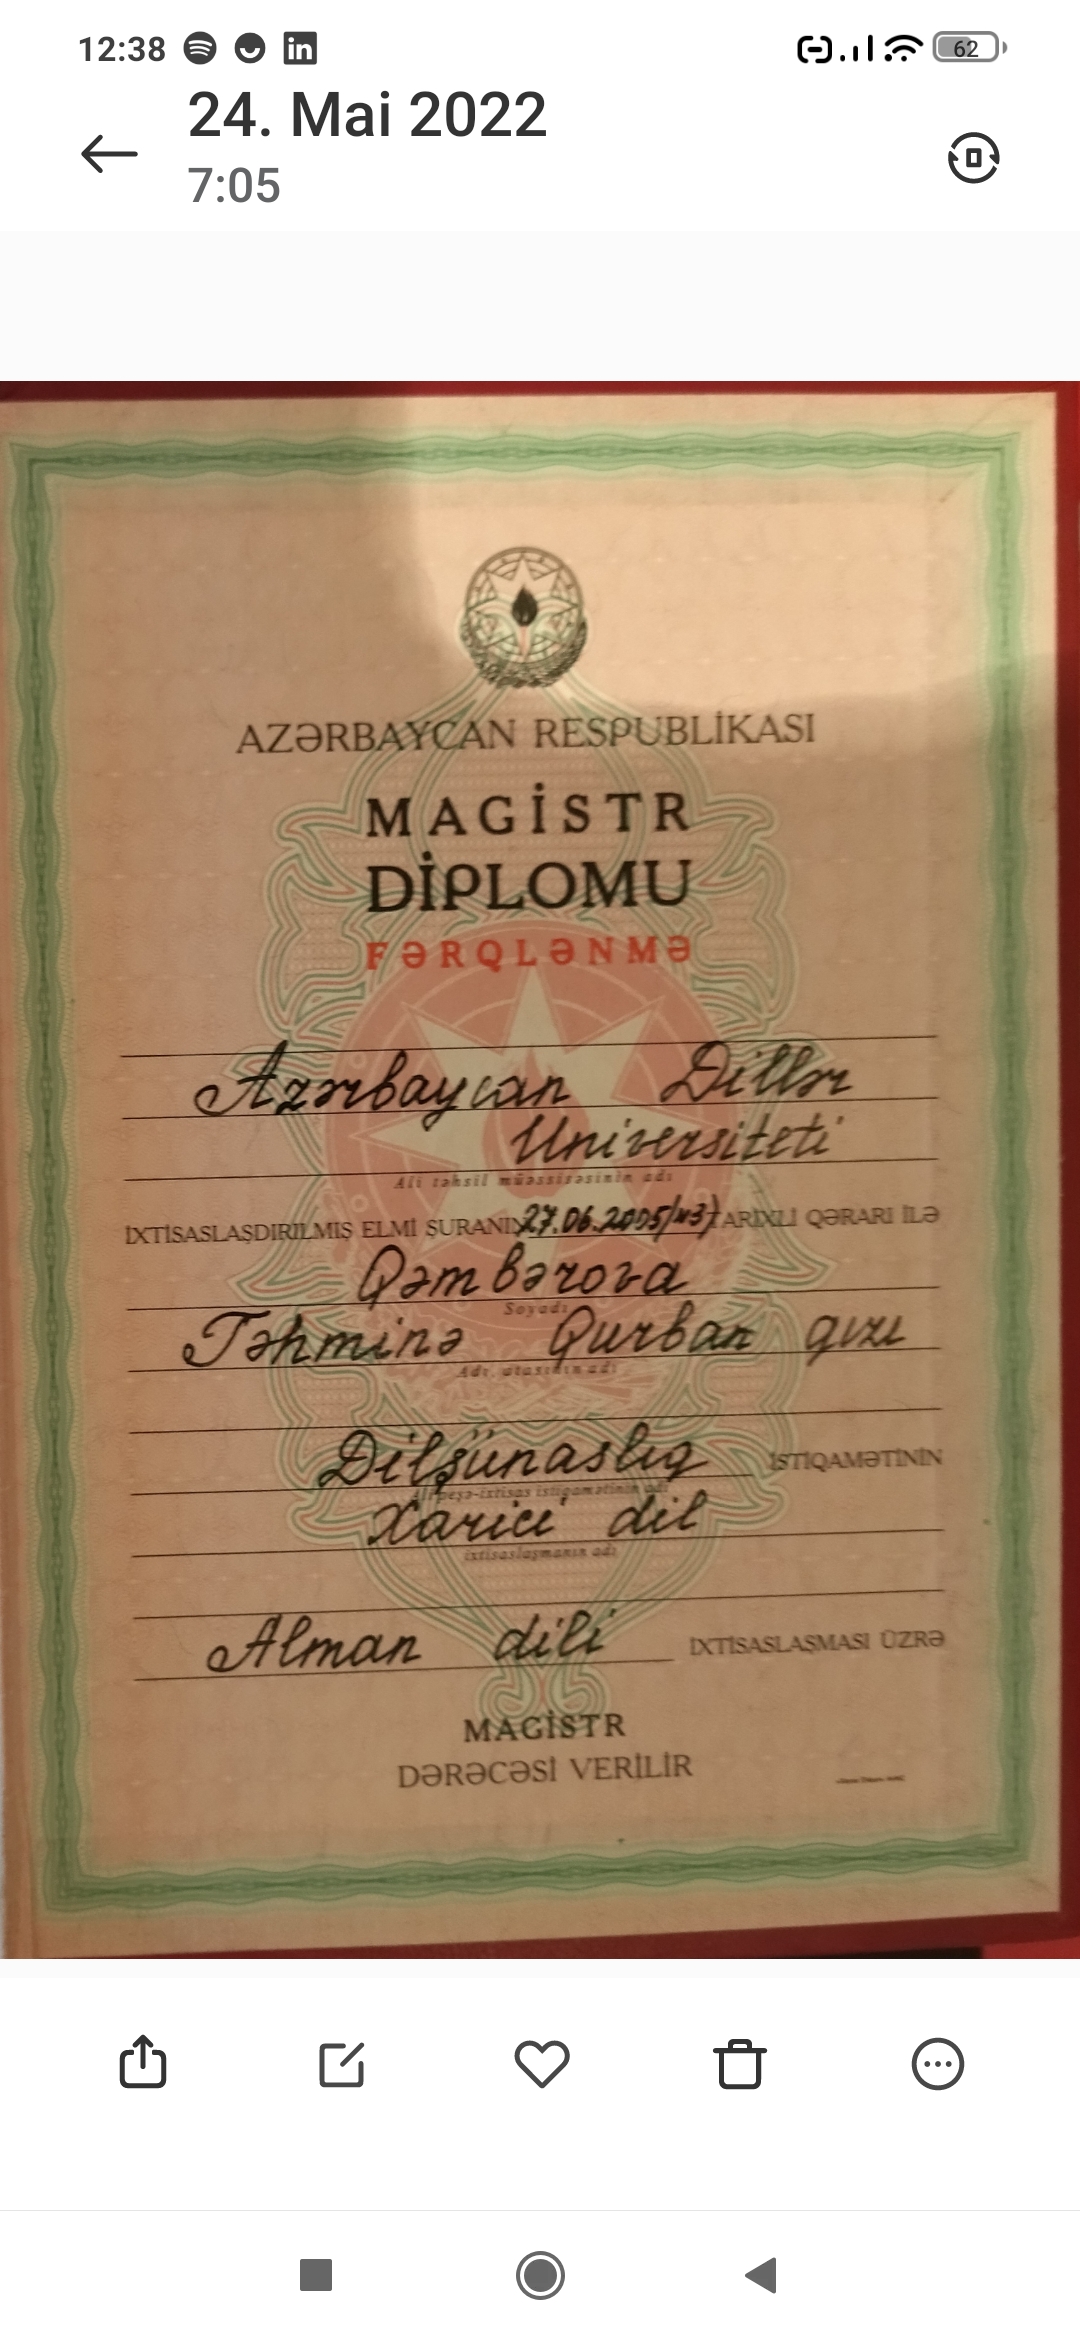 12:38
62
24. Mai 2022
7:05
AZƏRBAYCAN RESPUBLİKASI
MAGİSTR
DİPLOMU
FƏRQLƏNMƏ
Azərbaycan Dillər
Universiteti
Ali təhsil müəssisəsinin adı
İXTİSASLAŞDIRILMIŞ ELMİ ŞURANIN 27.06.2005 TARİXLİ QƏRARI İLƏ
Qəmbərova
Soyadı
Təhminə Qurban qızı
Adı, atasının adı
Dilşünaslıq İSTİQAMƏTİNİN
Ali peşə-ixtisas istiqamətinin adı
Xarici dil
ixtisaslaşmanın adı
Alman dili İXTİSASLAŞMASI ÜZRƏ
MAGİSTR
DƏRƏCƏSİ VERİLİR